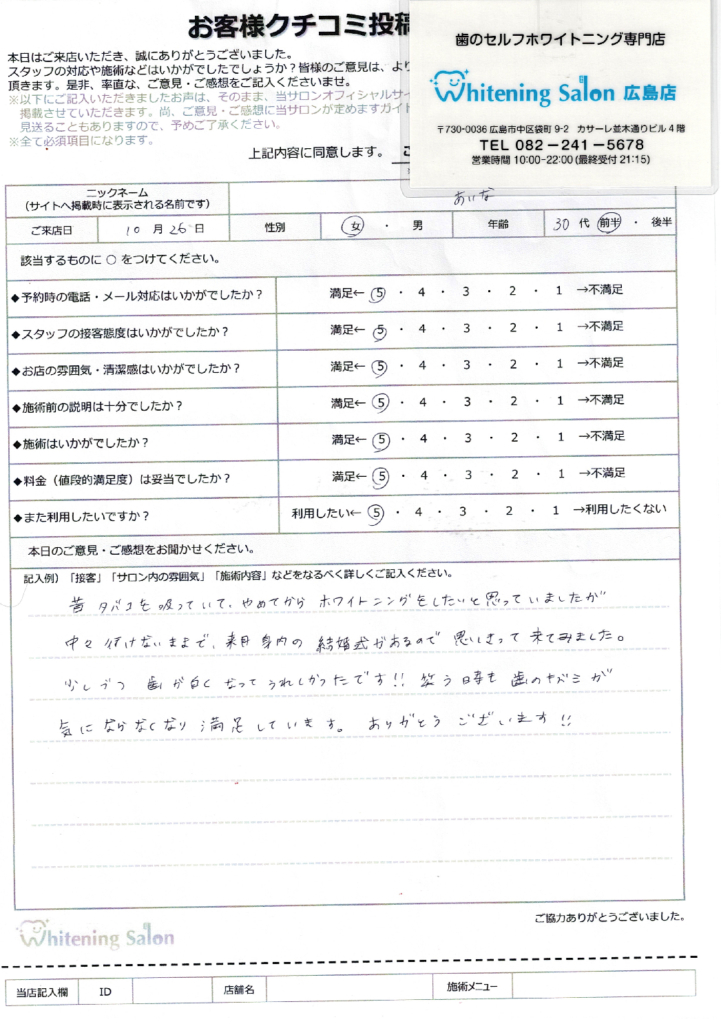 お客様クチコミ投稿
本日はご来店いただき、誠にありがとうございました。
スタッフの対応や施術などはいかがでしたでしょうか？皆様のご意見は、より
頂きます。是非、率直な、ご意見・ご感想をご記入くださいませ。
※以下にご記入いただきましたお声は、そのまま、当サロンオフィシャルサイ
掲載させていただきます。尚、ご意見・ご感想に当サロンが定めますガイド
見送ることもありますので、予めご了承ください。
※全て必須項目になります。
上記内容に同意します。
歯のセルフホワイトニング専門店
Whitening Salon 広島店
〒730-0036 広島市中区袋町 9-2 カサーレ並木通りビル 4 階
TEL 082-241-5678
営業時間 10:00-22:00 (最終受付 21:15)
ニックネーム
(サイトへ掲載時に表示される名前です)
あいな
ご来店日 10 月 26 日 性別 女 ・ 男 年齢 30 代 前半 ・ 後半
該当するものに ○ をつけてください。
◆予約時の電話・メール対応はいかがでしたか？ 満足← 5 ・ 4 ・ 3 ・ 2 ・ 1 →不満足
◆スタッフの接客態度はいかがでしたか？ 満足← 5 ・ 4 ・ 3 ・ 2 ・ 1 →不満足
◆お店の雰囲気・清潔感はいかがでしたか？ 満足← 5 ・ 4 ・ 3 ・ 2 ・ 1 →不満足
◆施術前の説明は十分でしたか？ 満足← 5 ・ 4 ・ 3 ・ 2 ・ 1 →不満足
◆施術はいかがでしたか？ 満足← 5 ・ 4 ・ 3 ・ 2 ・ 1 →不満足
◆料金（値段的満足度）は妥当でしたか？ 満足← 5 ・ 4 ・ 3 ・ 2 ・ 1 →不満足
◆また利用したいですか？ 利用したい← 5 ・ 4 ・ 3 ・ 2 ・ 1 →利用したくない
本日のご意見・ご感想をお聞かせください。
記入例）「接客」「サロン内の雰囲気」「施術内容」などをなるべく詳しくご記入ください。
昔タバコを吸っていて、やめてから ホワイトニングをしたいと思っていましたが
中々 行けないままで、来月 身内の 結婚式があるので 思いきって 来てみました。
少しづつ 歯が白く なって うれしかったです!! 笑う時も 歯のキバミが
気にならなくなり 満足しています。 ありがとう ございます!!
ご協力ありがとうございました。
Whitening Salon
当店記入欄 ID 店舗名 施術メニュー